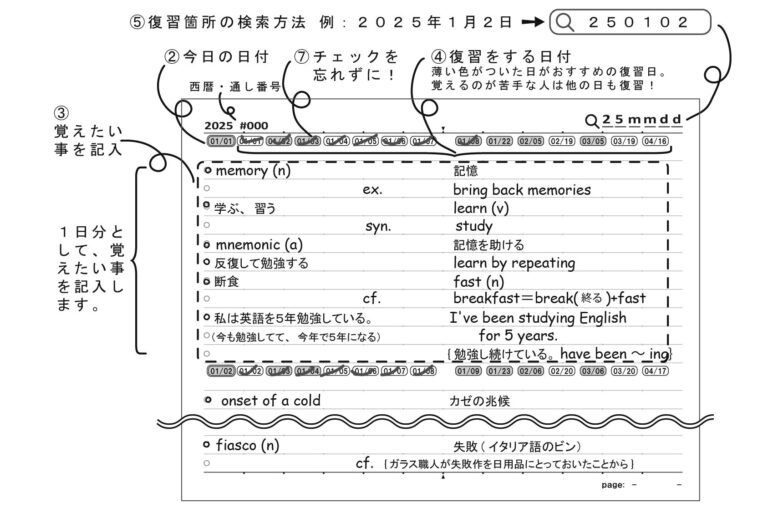 ⑤復習箇所の検索方法 例：２０２５年１月２日 250102
②今日の日付 ⑦チェックを忘れずに！ ④復習をする日付
薄い色がついた日がおすすめの復習日。
覚えるのが苦手な人は他の日も復習！
西暦・通し番号
③
覚えたい
事を記入
2025 #000 25mmdd
01/01 01/01 01/02 01/03 01/04 01/05 01/06 01/07 01/08 01/22 02/05 02/19 03/05 03/19 04/16
memory (n) 記憶
ex. bring back memories
学ぶ、習う learn (v)
syn. study
mnemonic (a) 記憶を助ける
反復して勉強する learn by repeating
断食 fast (n)
cf. breakfast＝break(終る)+fast
私は英語を5年勉強している。 I've been studying English
(今も勉強してて、今年で5年になる) for 5 years.
{勉強し続けている。have been ～ ing}
１日分と
して、覚
えたい事
を記入し
ます。
01/02 01/02 01/03 01/04 01/05 01/06 01/07 01/08 01/09 01/23 02/06 02/20 03/06 03/20 04/17
onset of a cold カゼの兆候
fiasco (n) 失敗(イタリア語のビン)
cf. {ガラス職人が失敗作を日用品にとっておいたことから}
page: – –